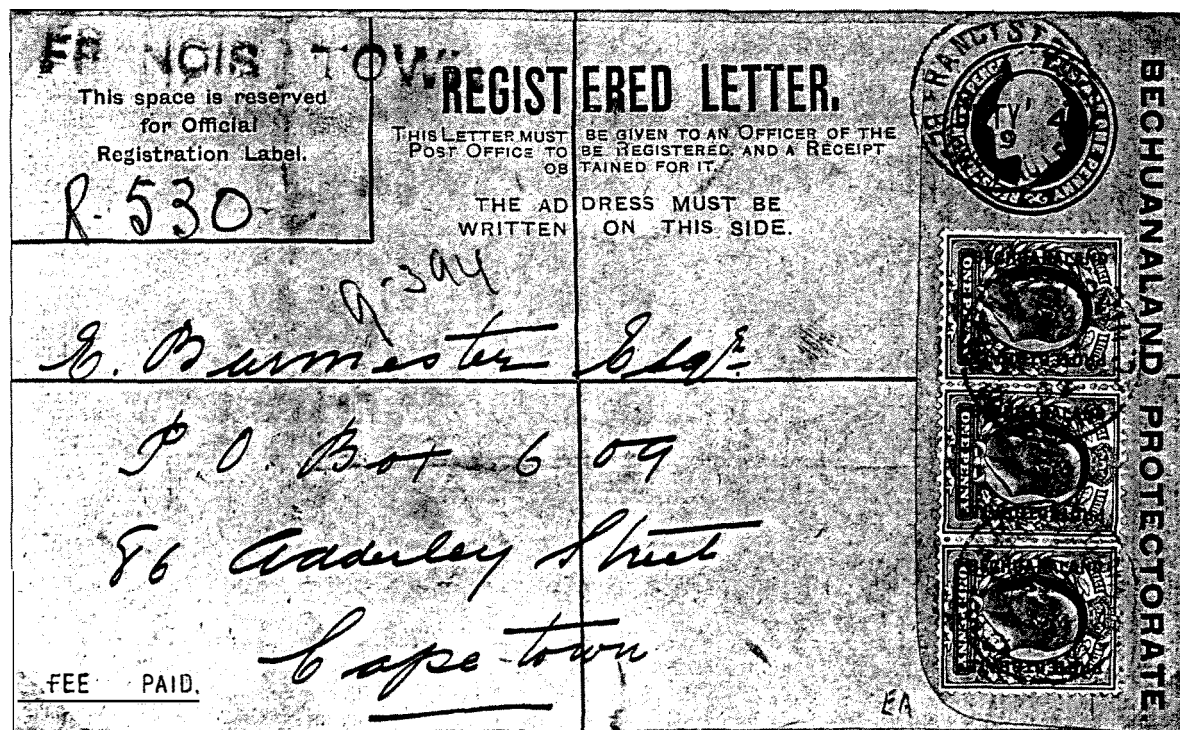 FR NCIS TOW
This space is reserved
for Official
Registration Label.
R-530
REGISTERED LETTER.
THIS LETTER MUST BE GIVEN TO AN OFFICER OF THE
POST OFFICE TO BE REGISTERED, AND A RECEIPT
OBTAINED FOR IT.
THE ADDRESS MUST BE
WRITTEN ON THIS SIDE.
9-394
E. Burmester Esqr.
P.O. Box 609
86 Adderley Street
Cape Town
FEE PAID.
EA
BECHUANALAND PROTECTORATE.
FRANCIST
ONE PENNY
BECHUANALAND
ONE PENNY
BECHUANALAND
ONE PENNY
BECHUANALAND